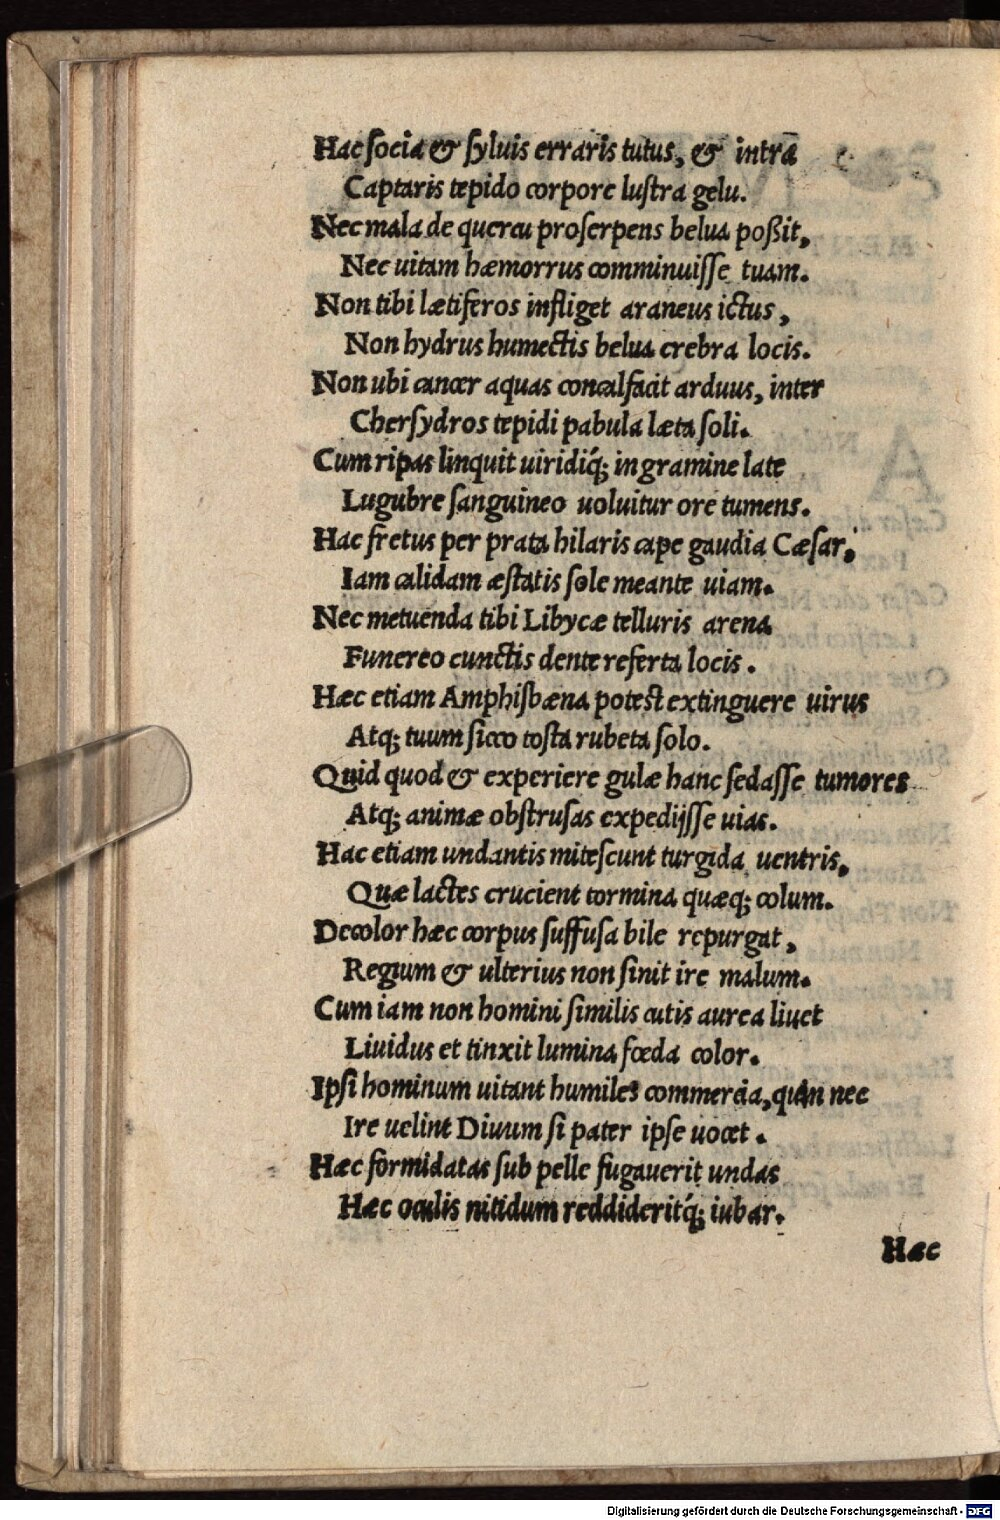 Hac socia & syluis erraris tutus, & intrā
Captaris tepido corpore lustra gelu.
Nec mala de quercu proserpens belua poßit,
Nec uitam hæmorrus comminuisse tuam.
Non tibi lætiferos infliget araneus ictus,
Non hydrus humectis belua crebra locis.
Non ubi cancer aquas concalfacit arduus, inter
Chersydros tepidi pabula læta soli.
Cum ripas linquit uiridiq́; in gramine late
Lugubre sanguineo uoluitur ore tumens.
Hac fretus per prata hilaris cape gaudia Cæsar,
Iam calidam æstatis sole meante uiam.
Nec metuenda tibi Libycæ telluris arena
Funereo cunctis dente referta locis.
Hæc etiam Amphisbæna potest extinguere uirus
Atq; tuum sicco tosta rubeta solo.
Quid quod & experiere gulæ hanc sedasse tumores
Atq; animæ obstrusas expedijsse uias.
Hac etiam undantis mitescunt turgida uentris,
Quæ lactes crucient tormina quæq; colum.
Decolor hæc corpus suffusa bile repurgat,
Regium & ulterius non sinit ire malum.
Cum iam non homini similis cutis aurea liuet
Liuidus et tinxit lumina fœda color.
Ipsi hominum uitant humiles commercia, quin nec
Ire uelint Diuum si pater ipse uocet.
Hæc formidatas sub pelle fugauerit undas
Hæc oculis nitidum reddideritq́; iubar.
Hæc
Digitalisierung gefördert durch die Deutsche Forschungsgemeinschaft - DFG